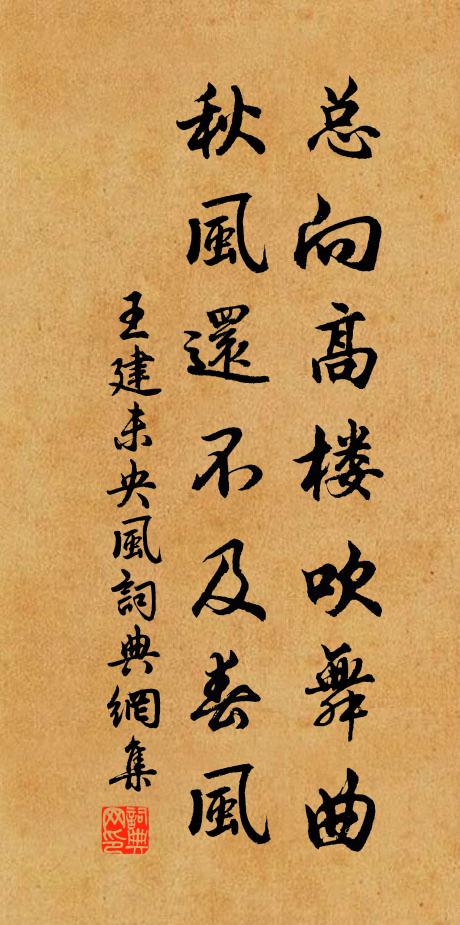 总向高楼吹舞曲
秋風還不及春風
王建未央風詞典網集
詞典网印